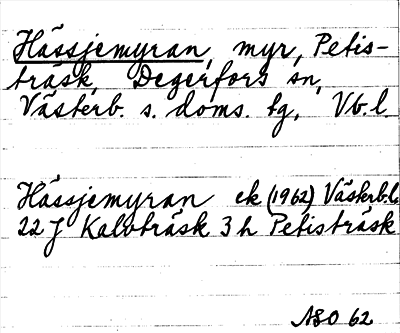 Hässjemyran, myr, Petis-
träsk, Degerfors sn,
Västerb. s. doms. tg, Vb.l.
Hässjemyran ek (1962) Västerb.l.
22 J Kalvträsk 3 h Petisträsk
ASO 62